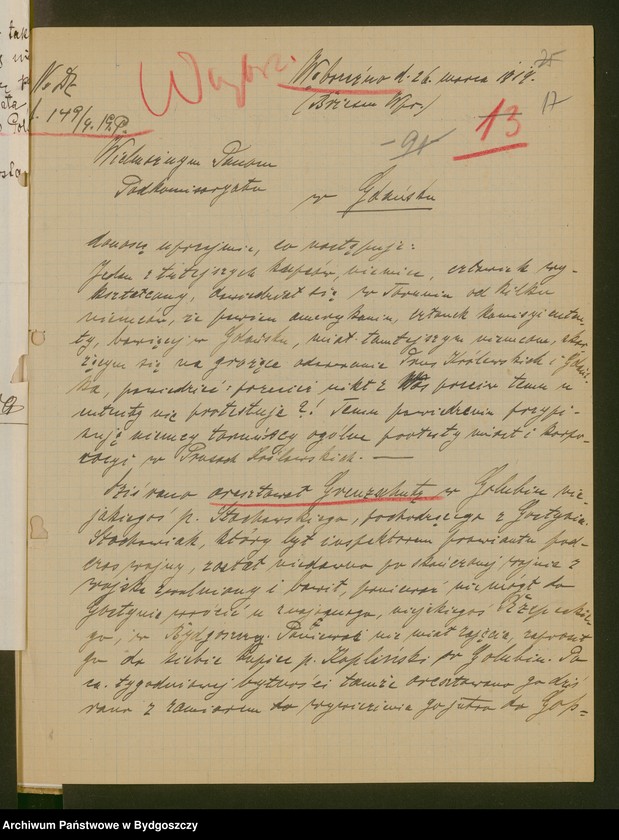 No Dz.
l. 149/4. 19 P.
Wąbrzeźno d. 26. marca 1919.
(Briesen Wpr.)
25
17
13
-91-
Wielmożnym Panom
Podkomisaryatu
w Gdańsku
donoszę uprzejmie, co następuje:
Jeden z tutejszych kupców, niemiec, człowiek wy-
kształcony, dowiedział się w Toruniu od kilku
niemców, że pewien amerykanin, członek komisyi
bawiącej w Gdańsku, miał tamtejszym niemcom, skar-
żącym się na grożące oderwanie Prus Królewskich i Gdań-
ska, powiedzieć: przecież nikt z Was przeciw temu
nie protestuje?! Temu powiedzeniu przypi-
sują niemcy toruńscy ogólne protesty miast i korpo-
racyi w Prusach Królewskich. —
Dziś rano aresztował Grenzschutz w Golubiu nie-
jakiegoś p. Stachowskiego, pochodzącego z Gostynia.
Stachowiak, który był inspektorem prowiantu pod-
czas wojny, został niedawno po skończonej wojnie z
wojska zwolniony i bawił, ponieważ nie mógł do
Gostynia wrócić u znajomego, niejakiegoś
go, w Bydgoszczy. Ponieważ nie miał zajęcia, zaprosił
go do siebie kupiec p. Kopliński w Golubiu. Po
ca. tygodniowej bytności tamże aresztowano go dziś
rano z zamiarem do wywiezienia go jutro do
Archiwum Państwowe w Bydgoszczy